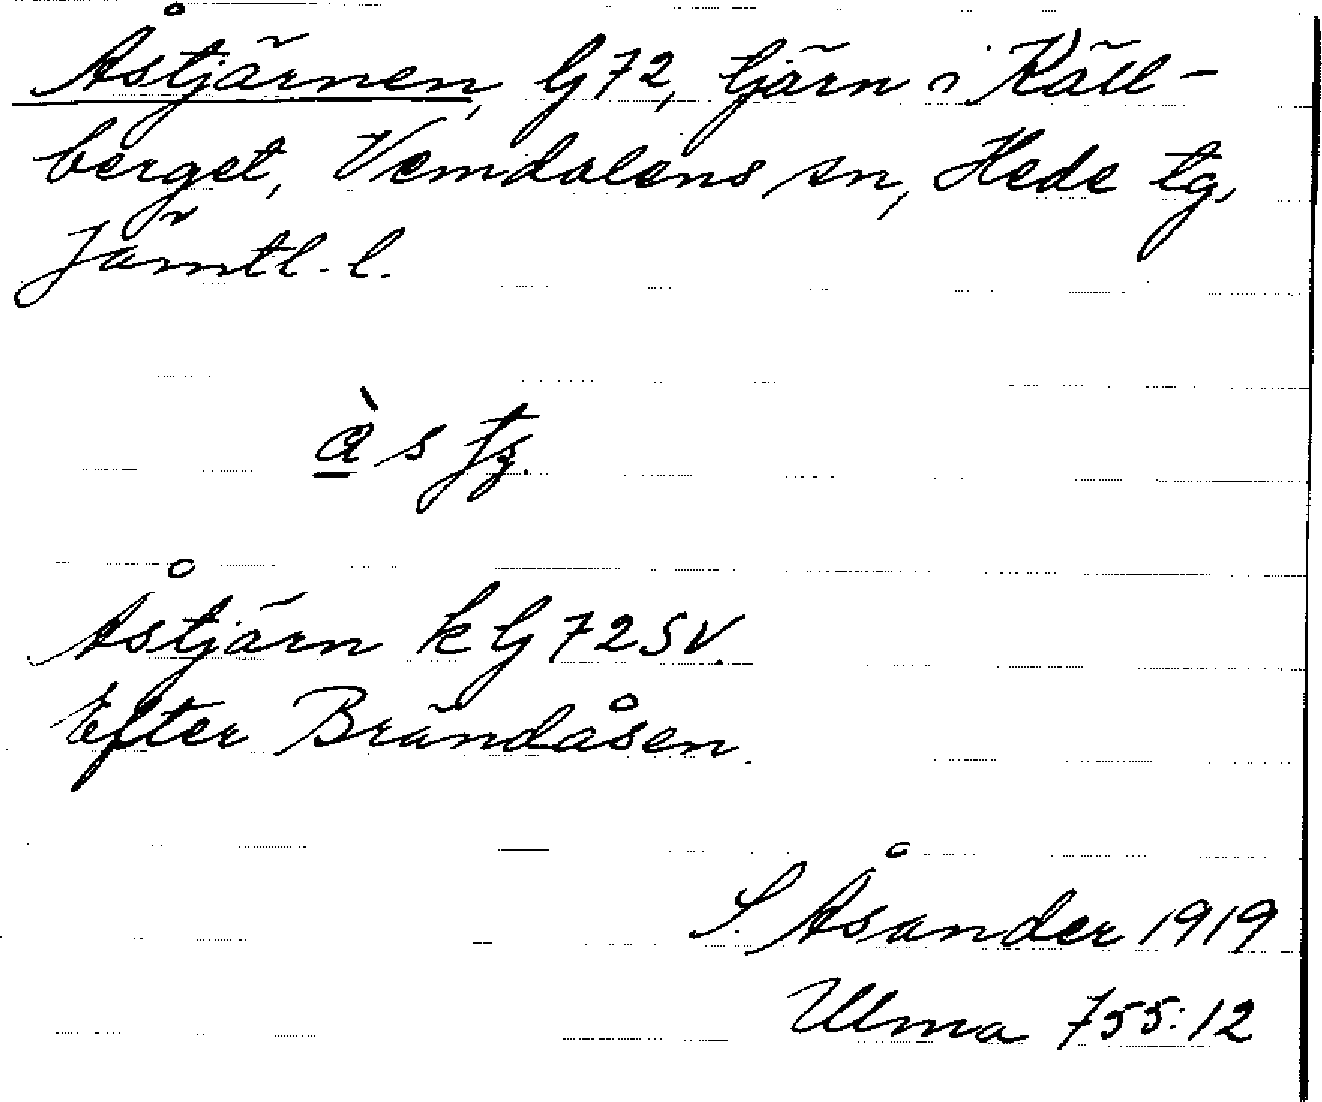 Åstjärnen, G72, tjärn i Käll-
berget, Vemdalens sn, Hede tg,
Jämtl. l.
Åstjärn k G 72 SV.
Efter Brändåsen.
S. Åsander 1919
Ulma 755:12